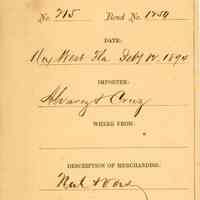 No. 715 Bond No. 1759
DATE:
Key West Fla Feby 12. 1894
IMPORTER:
Alvarez & Cruz
WHERE FROM:
DESCRIPTION OF MERCHANDISE: